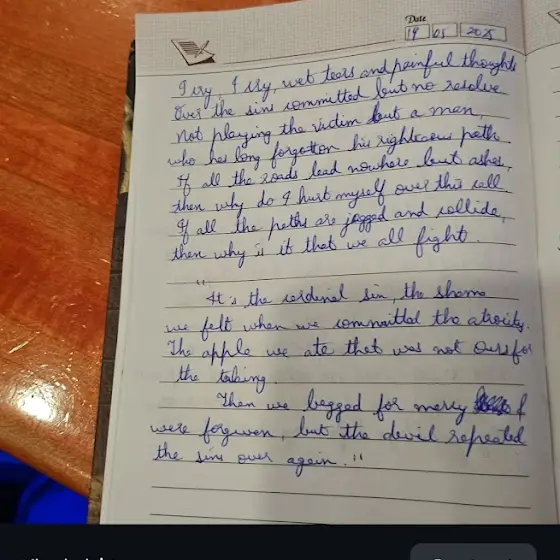 Date
19 05 2025
I cry, I cry, wet tears and painful thoughts
Over the sins committed but no resolve
Not playing the victim but a man,
who has long forgotten his righteous path
If all the roads lead nowhere but ashes,
then why do I hurt myself over this all
If all the paths are jagged and collide,
then why is it that we all fight.
"
It's the cardinal sin, the shame
we felt when we committed the atrocity.
The apple we ate that was not ours for
the taking.
Then we begged for mercy &
were forgiven, but the devil repeated
the sins over again."